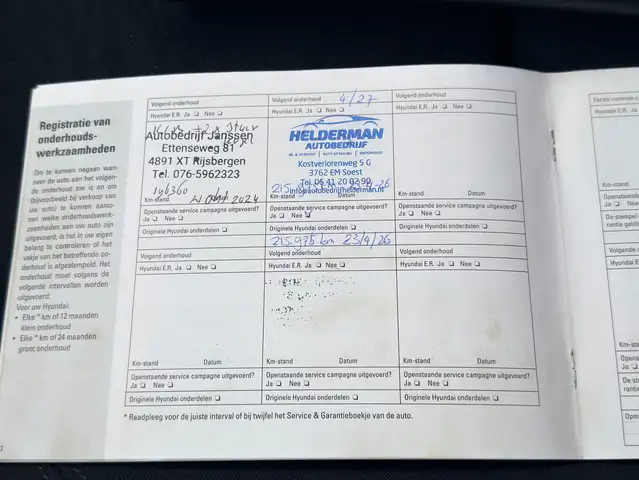 Registratie van
onderhouds-
werkzaamheden
Om te kunnen nagaan wan-
neer de auto aan het volgen-
de onderhoud toe is en om
(bijvoorbeeld bij verkoop van
uw auto) te kunnen aanto-
nen welke onderhoudswerk-
zaamheden aan uw auto zijn
uitgevoerd, is het in uw eigen
belang te controleren of het
vakje van het betreffende on-
derhoud is afgestempeld. Het
onderhoud moet volgens de
volgende intervallen worden
uitgevoerd:
Voor uw Hyundai:
• Elke * km of 12 maanden
klein onderhoud
• Elke * km of 24 maanden
groot onderhoud
Volgend onderhoud
Hyundai E.R. Ja ❏ Nee ❏
Autobedrijf Janssen
Ettenseweg 81
4891 XT Rijsbergen
Tel. 076-5962323
196360
Km-stand 2024
Openstaande service campagne uitgevoerd?
Ja ❏ Nee ❏
Originele Hyundai onderdelen ❏
Volgend onderhoud 4/27
Hyundai E.R. Ja ❏ Nee ❏
HELDERMAN
AUTOBEDRIJF
Kostverlorenweg 5 G
3762 EM Soest
Tel. 06 41 20 83 90
info@autobedrijfhelderman.nl
Openstaande service campagne uitgevoerd?
Ja ❏ Nee ❏
Originele Hyundai onderdelen ❏
215.975 km 23/4/26
Volgend onderhoud
Hyundai E.R. Ja ❏ Nee ❏
Km-stand Datum
Openstaande service campagne uitgevoerd?
Ja ❏ Nee ❏
Originele Hyundai onderdelen ❏
Volgend onderhoud
Hyundai E.R. Ja ❏ Nee ❏
Km-stand Datum
Openstaande service campagne uitgevoerd?
Ja ❏ Nee ❏
Originele Hyundai onderdelen ❏
Volgend onderhoud
Hyundai E.R. Ja ❏ Nee ❏
Km-stand Datum
Openstaande service campagne uitgevoerd?
Ja ❏ Nee ❏
Originele Hyundai onderdelen ❏
Volgend onderhoud
Hyundai E.R. Ja ❏ Nee ❏
Km-stand Datum
Openstaande service campagne uitgevoerd?
Ja ❏ Nee ❏
Originele Hyundai onderdelen ❏
* Raadpleeg voor de juiste interval of bij twijfel het Service & Garantieboekje van de auto.